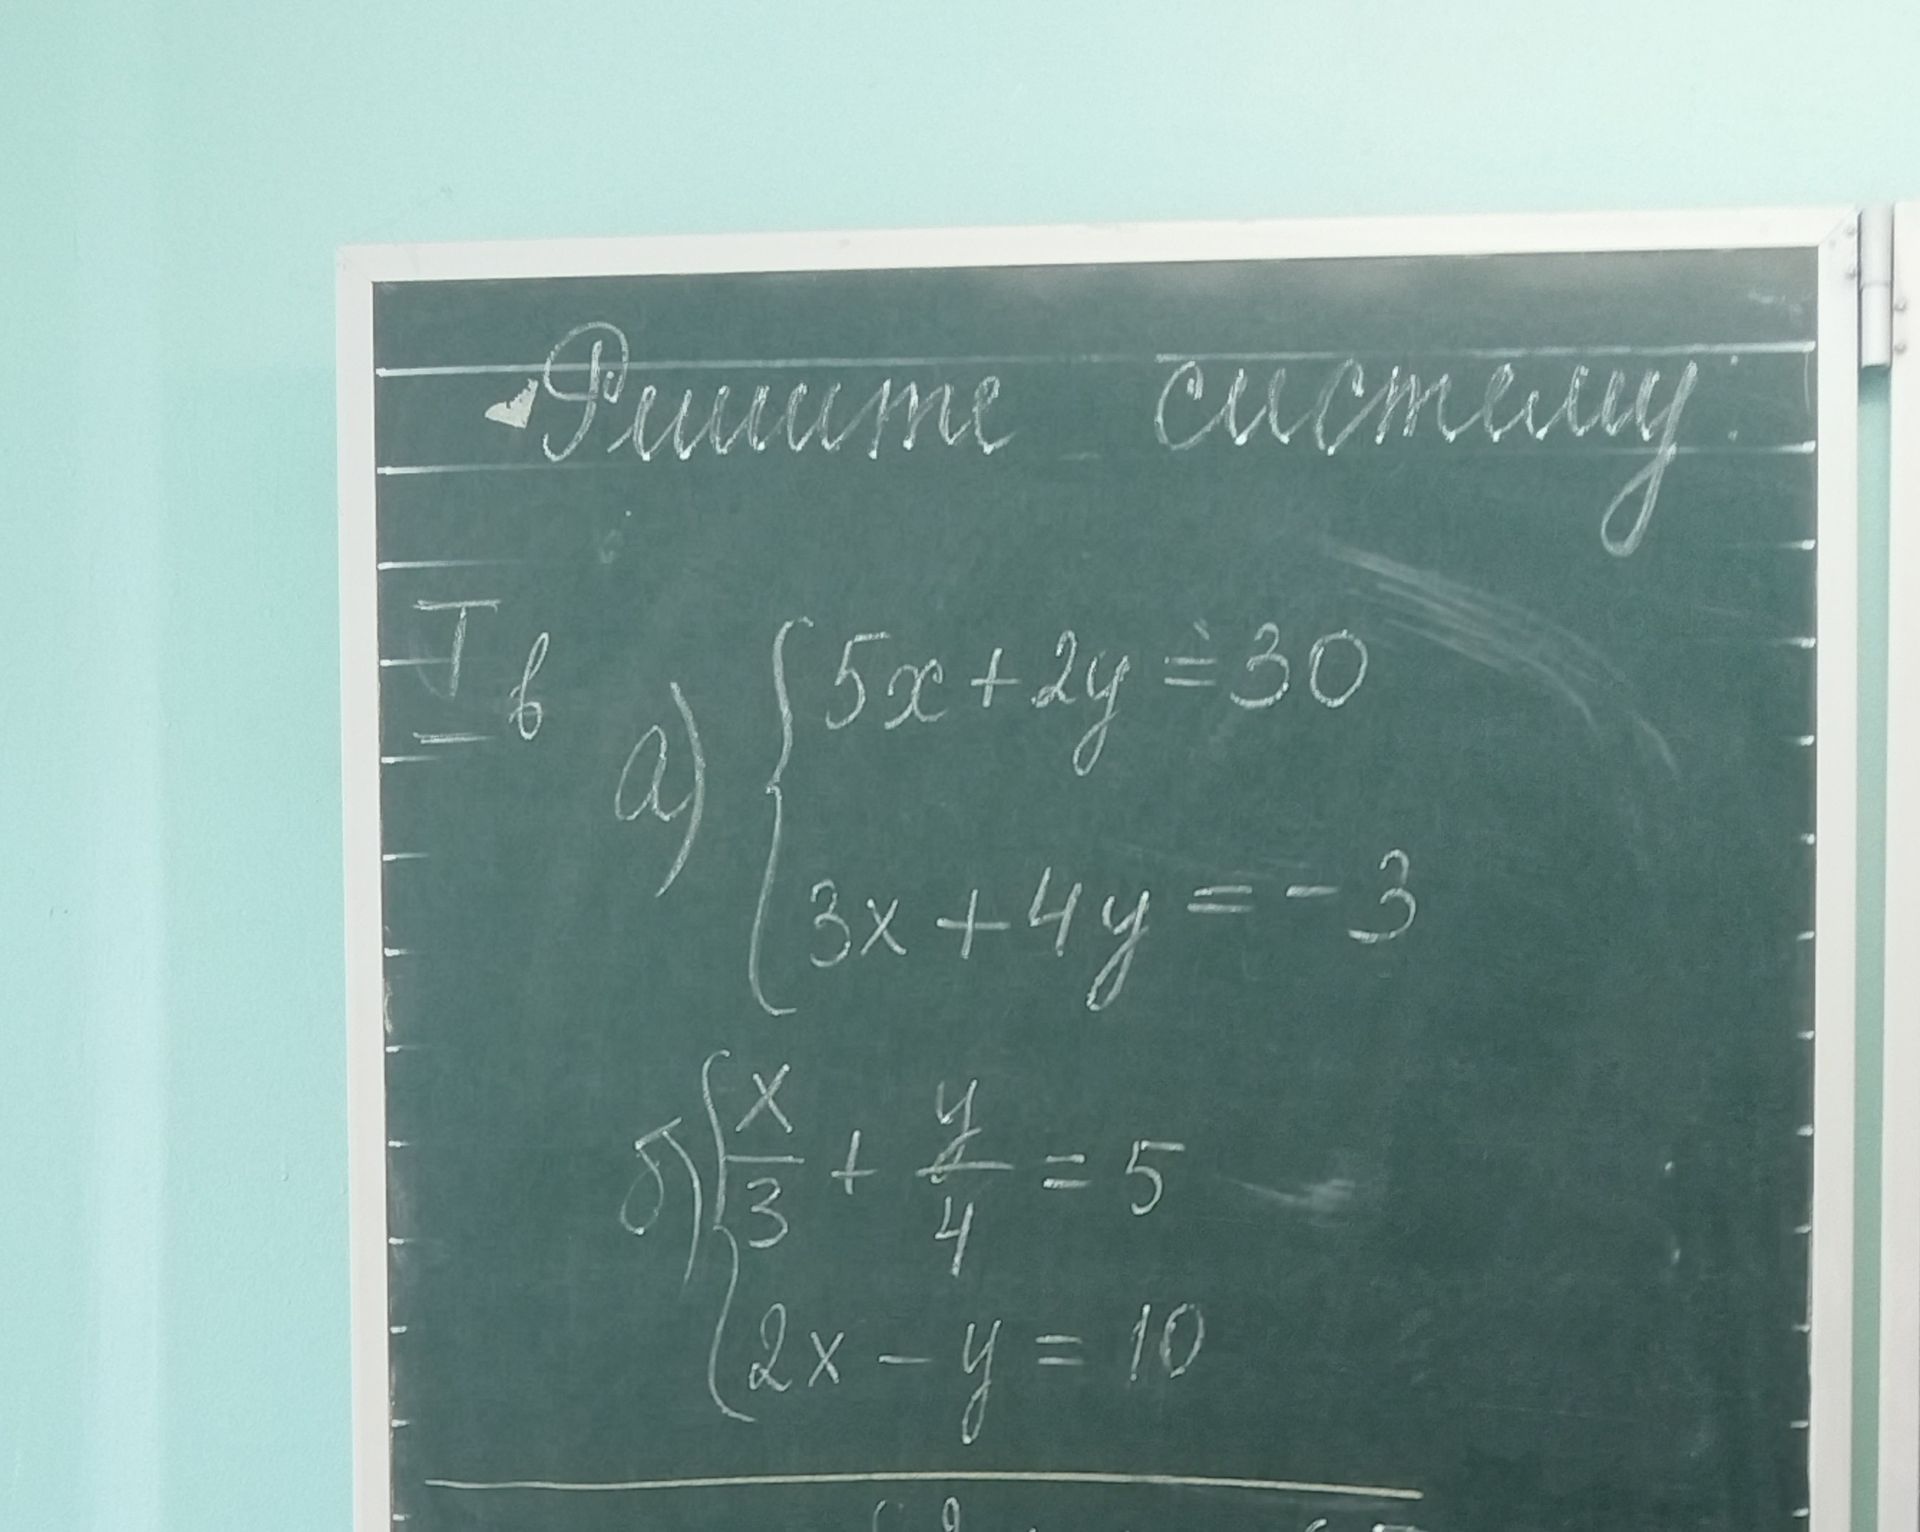 Решите систему:
I в
а) { 5x + 2y = 30
3x + 4y = -3
б) { x/3 + y/4 = 5
2x - y = 10